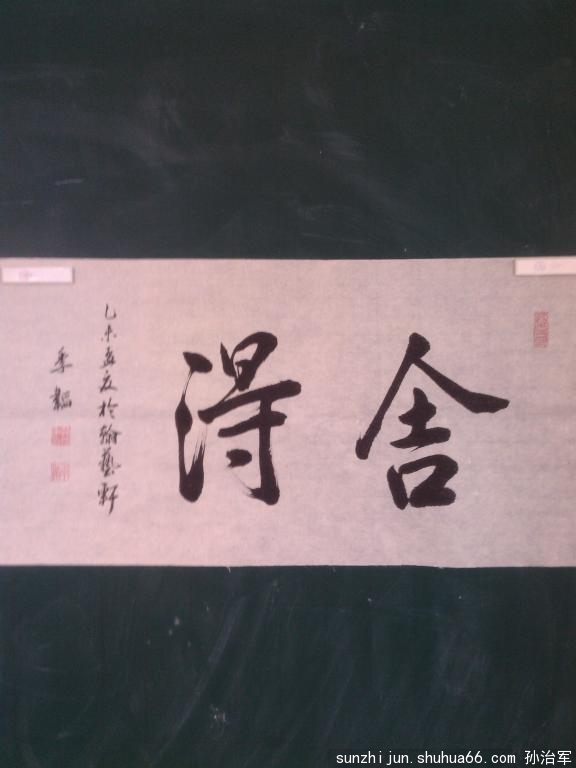 舍得
乙未孟夏於翰藝軒
季韜
sunzhijun.shuhua66.com 孙治军